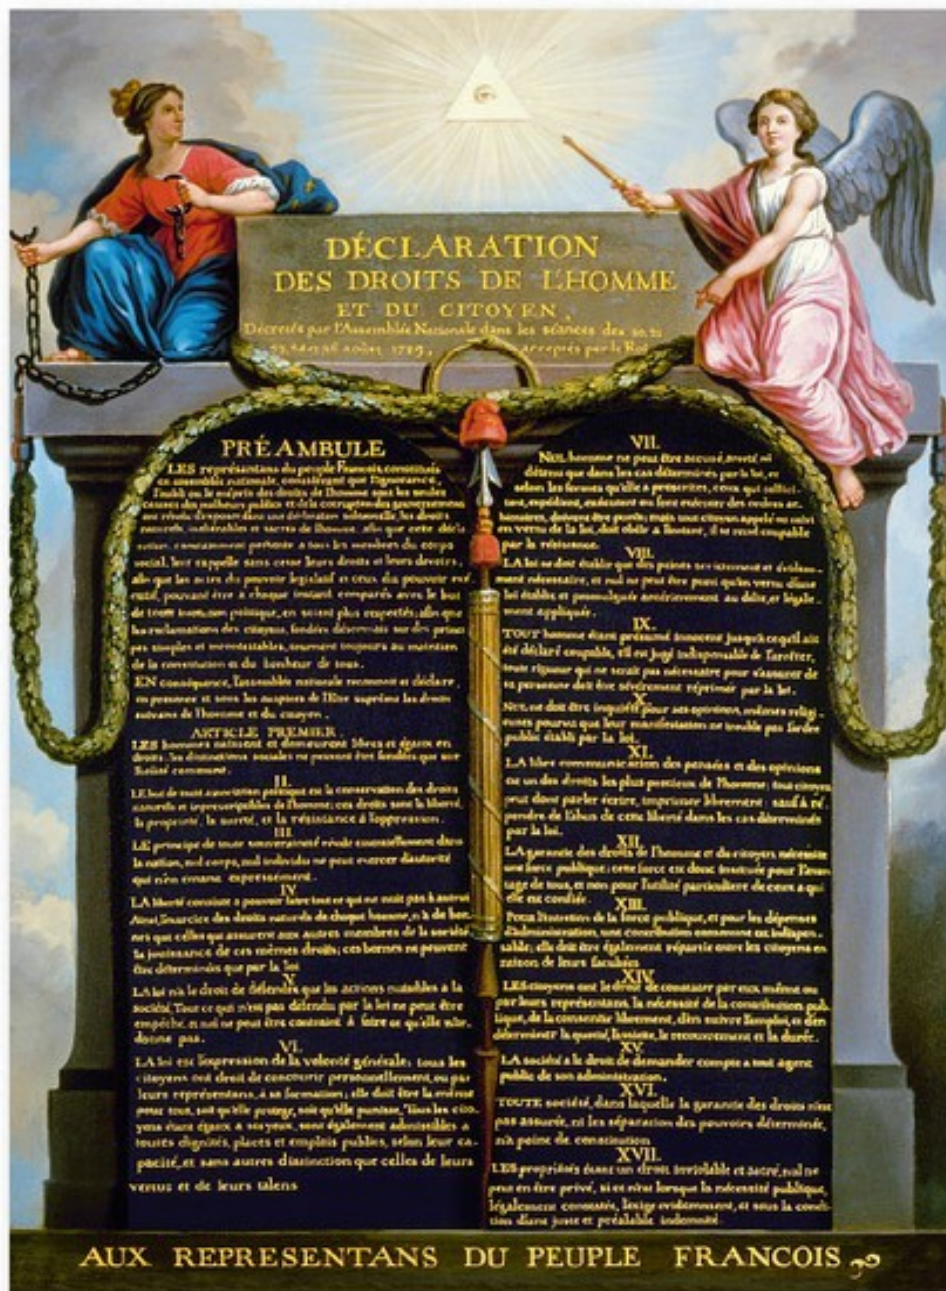 DÉCLARATION
DES DROITS DE L'HOMME
ET DU CITOYEN,
Décretés par l'Assemblée Nationale dans les séances des 20, 21
23, 24 et 26 août 1789, acceptés par le Roi
PRÉAMBULE
LES représentans du peuple François, constitués
en assemblée nationale, considérant que l'ignorance,
l'oubli ou le mépris des droits de l'homme sont les seules
causes des malheurs publics et de la corruption des gouvernemens
ont résolu d'exposer dans une déclaration solemnelle, les droits
naturels, inaliénables et sacrés de l'homme; afin que cette décla
ration, constamment présente a tous les membres du corps
social, leur rappelle sans cesse leurs droits et leurs devoirs;
afin que les actes du pouvoir législatif et ceux du pouvoir exé
cutif, pouvant être a chaque instant comparés avec le but
de toute institution politique, en soient plus respectés; afin que
les réclamations des citoyens, fondées désormais sur des princi
pes simples et incontestables, tournent toujours au maintien
de la constitution et du bonheur de tous.
EN conséquence, l'assemblée nationale reconnoit et déclare,
en presence et sous les auspices de l'Etre suprême les droits
suivans de l'homme et du citoyen.
ARTICLE PREMIER.
LES hommes naissent et demeurent libres et égaux en
droits. les distinctions sociales ne peuvent être fondées que sur
l'utilité commune.
II.
LE but de toute association politique est la conservation des droits
naturels et imprescriptibles de l'homme; ces droits sont la liberté,
la propriété, la sureté, et la résistance à l'oppression.
III.
LE principe de toute souveraineté réside essentiellement dans
la nation, nul corps, nul individu ne peut exercer d'autorité
qui n'en émane expressément.
IV.
LA liberté consiste a pouvoir faire tout ce qui ne nuit pas à autrui
Ainsi, l'exercice des droits naturels de chaque homme, n'a de bor
nes que celles qui assurent aux autres membres de la société
la jouissance de ces mêmes droits; ces bornes ne peuvent
être déterminées que par la loi
V.
LA loi n'a le droit de défendre que les actions nuisibles a la
société. Tout ce qui n'est pas défendu par la loi ne peut être
empêché, et nul ne peut être contraint à faire ce qu'elle n'or-
donne pas.
VI.
LA loi est l'expression de la volonté générale; tous les
citoyens ont droit de concourir personnellement, ou par
leurs représentans, à sa formation; elle doit être la même
pour tous, soit qu'elle protege, soit qu'elle punisse. Tous les cito-
yens étant égaux a ses yeux, sont également admissibles a
toutes dignités, places et emplois publics, selon leur ca-
pacité, et sans autres distinction que celles de leurs
vertus et de leurs talens
VII.
NUL homme ne peut être accusé, arreté, ni
détenu que dans les cas déterminés par la loi, et
selon les formes qu'elle a prescrites, ceux qui sollici-
tent, expédient, exécutent ou font exécuter des ordres ar-
bitraires, doivent être punis; mais tout citoyen appelé ou saisi
en vertu de la loi, doit obéir a l'instant, il se rend coupable
par la résistance.
VIII.
LA loi ne doit établir que des peines strictement et évidem-
ment nécessaire, et nul ne peut être puni qu'en vertu d'une
loi établie et promulguée antérieurement au délit, et légale-
ment appliquée.
IX.
TOUT homme étant présumé innocent jusqu'à ce qu'il ait
été déclaré coupable, s'il est jugé indispensable de l'arrêter,
toute rigueur qui ne serait pas nécessaire pour s'assurer de
sa personne doit être sévèrement réprimée par la loi.
X.
NUL ne doit être inquiété pour ses opinions, mêmes religi-
euses pourvu que leur manifestation ne trouble pas l'ordre
public établi par la loi.
XI.
LA libre communication des pensées et des opinions
est un des droits les plus precieux de l'homme; tout citoyen
peut donc parler écrire, imprimer librement; sauf à ré
pondre de l'abus de cette liberté dans les cas déterminés
par la loi.
XII.
LA garantie des droits de l'homme et du citoyen nécessite
une force publique; cette force est donc instituée pour l'avan
tage de tous, et non pour l'utilité particuliere de ceux a qui
elle est confiée.
XIII.
POUR l'entretien de la force publique, et pour les dépenses
d'administration, une contribution commune est indispen-
sable; elle doit être également répartie entre les citoyens en
raison de leurs facultées
XIV.
LES citoyens ont le droit de constater par eux même ou
par leurs représentans, la nécessité de la contribution pub-
lique, de la consentir librement, d'en suivre l'emploi, et d'en
déterminer la quotité, l'assiette, le recouvrement et la durée.
XV.
LA société a le droit de demander compte a tout agent
public de son administration.
XVI.
TOUTE société, dans laquelle la garantie des droits n'est
pas assurée, ni les séparation des pouvoirs déterminée,
n'a point de constitution
XVII.
LES propriétés étant un droit inviolable et sacré, nul ne
peut en être privé, si ce n'est lorsque la nécessité publique,
légalement constatée, l'exige evidemment, et sous la condi-
tion d'une juste et préalable indemnité.
AUX REPRESENTANS DU PEUPLE FRANCOIS